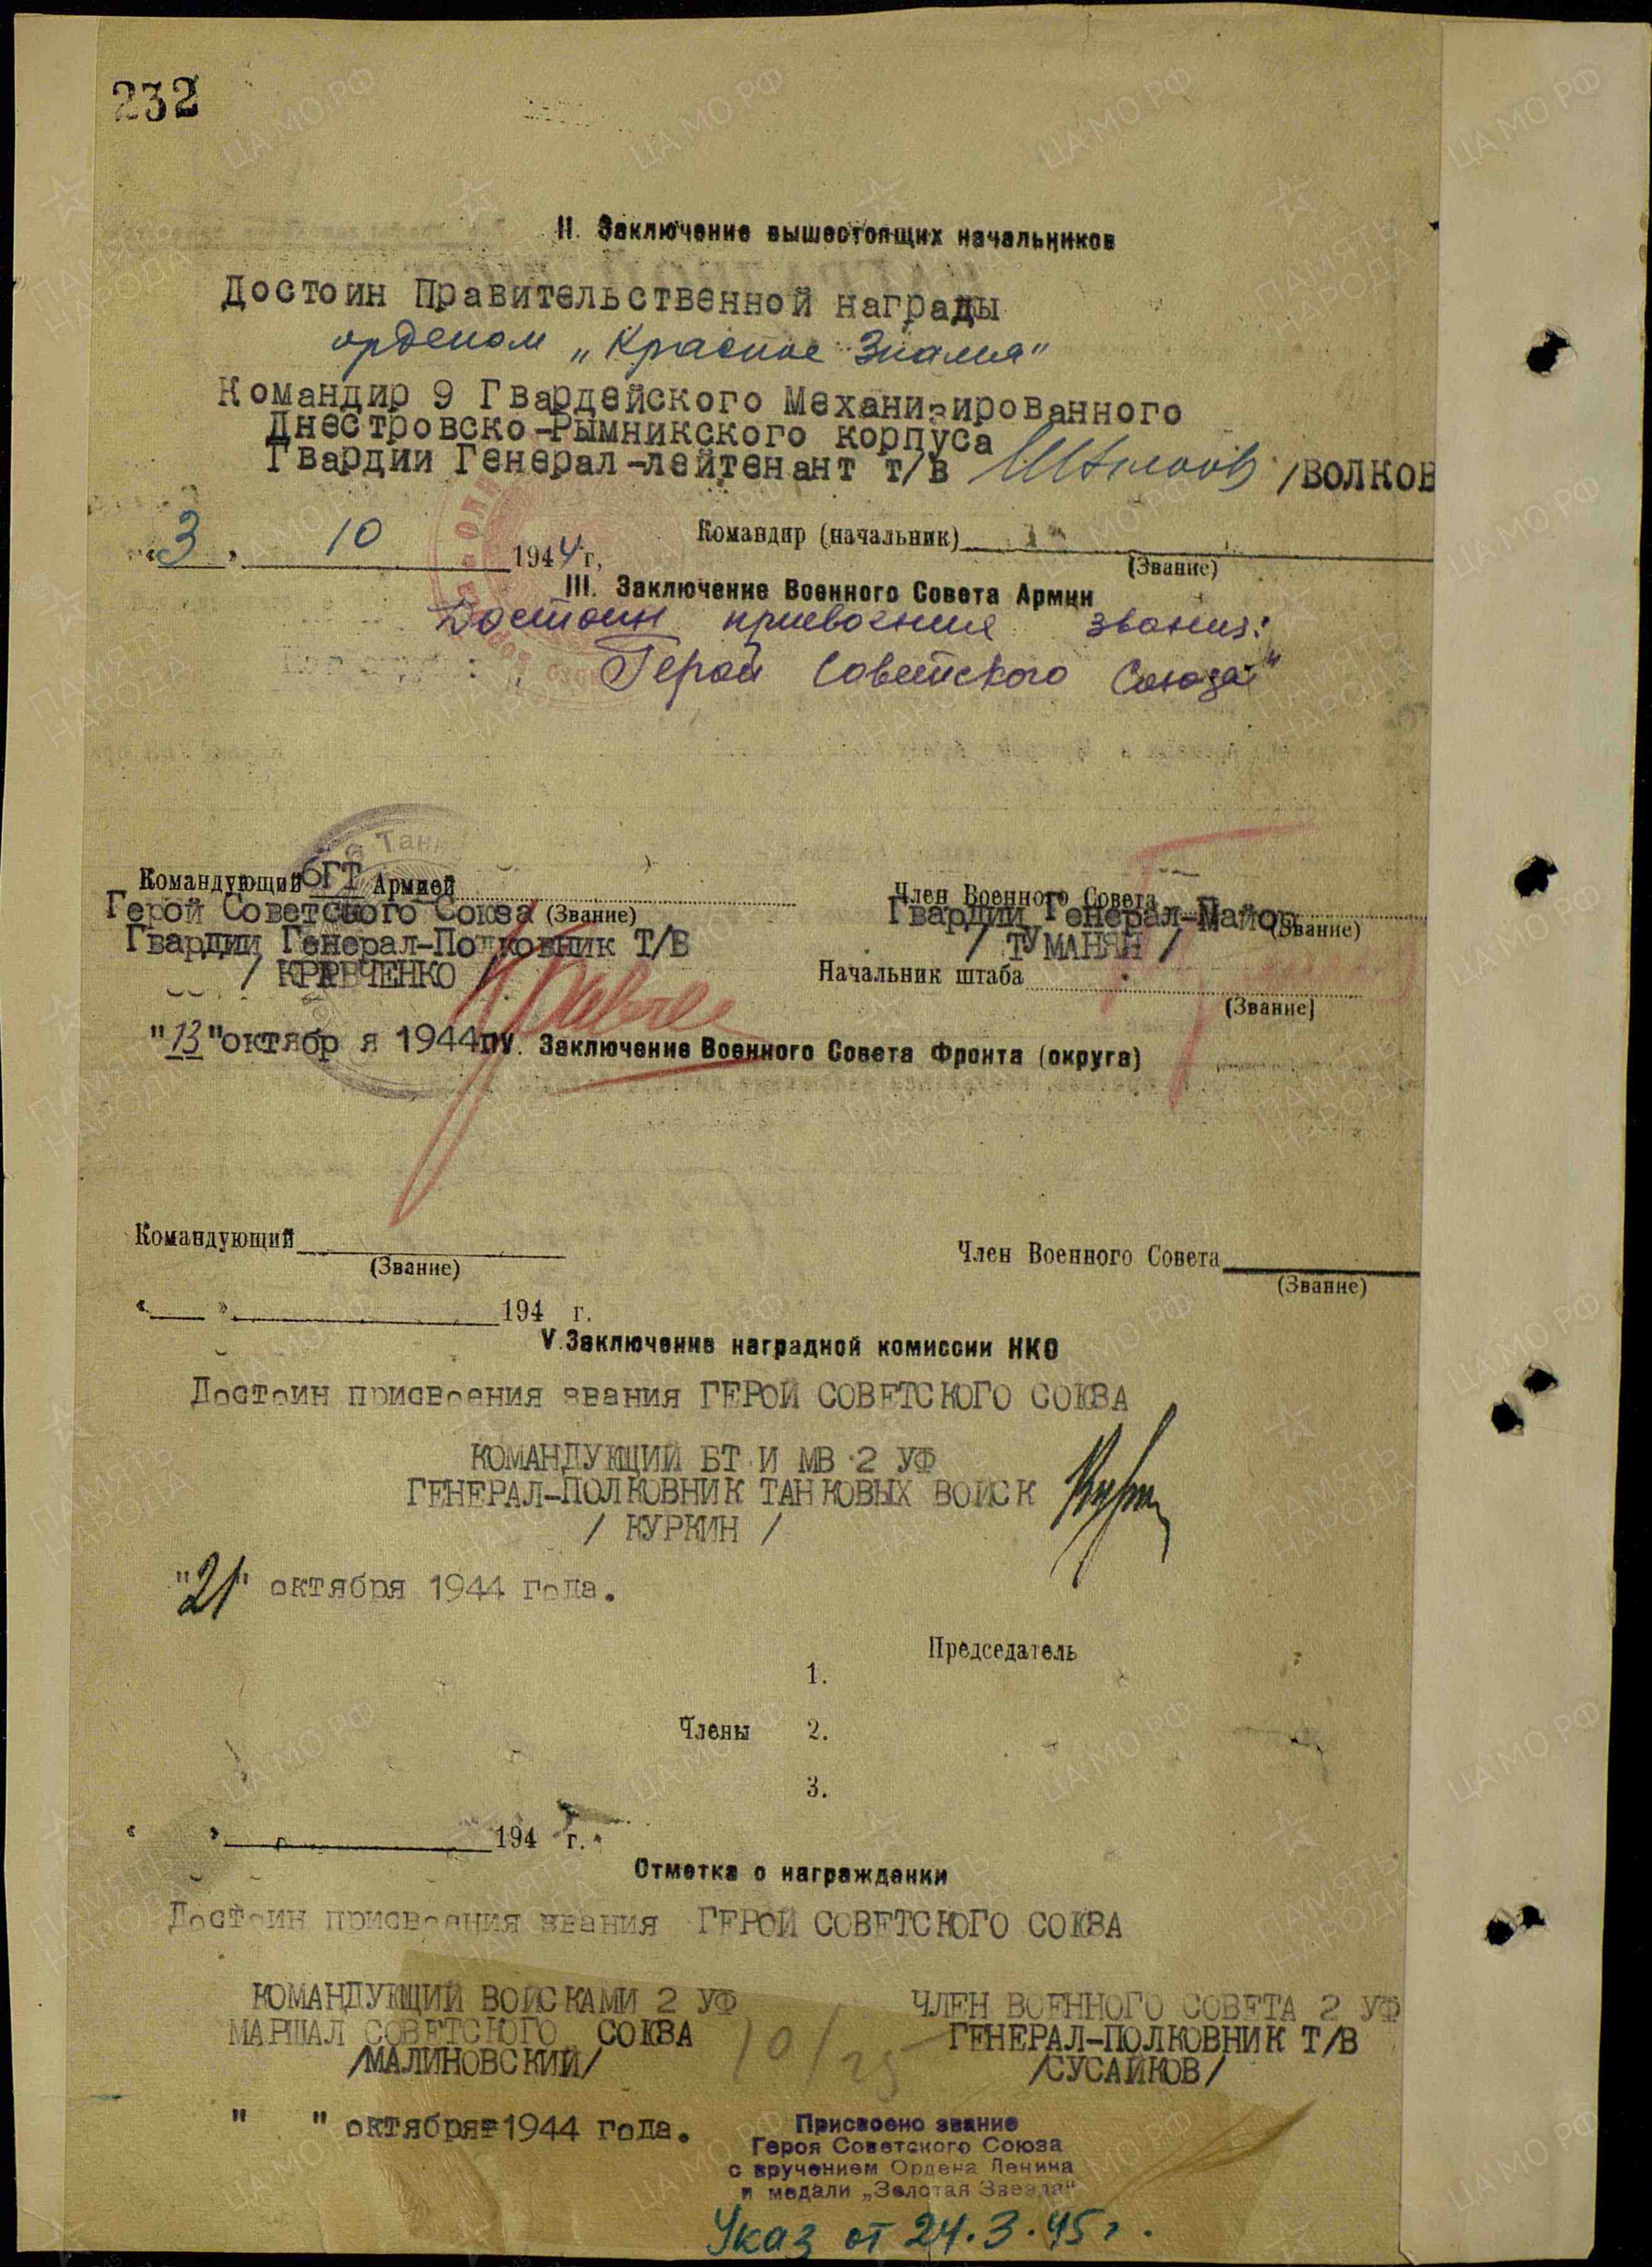 232
II. Заключение вышестоящих начальников
Достоин Правительственной награды
орденом „Красное Знамя"
Командир 9 Гвардейского Механизированного
Днестровско-Рымникского корпуса
Гвардии Генерал-лейтенант т/в /ВОЛКОВ
„3" 10 1944 г. Командир (начальник)
(Звание)
III. Заключение Военного Совета Армии
Достоин присвоения звания:
Герой Советского Союза"
Командующий 6ГТ Армией
Член Военного Совета
Герой Советского Союза (Звание)
Гвардии Генерал-Майор (Звание)
Гвардии Генерал-Полковник Т/В
/ ТУМАНЯН /
/ КРАВЧЕНКО /
Начальник штаба
(Звание)
"13" октябр я 1944
IV. Заключение Военного Совета Фронта (округа)
Командующий
(Звание)
Член Военного Совета
(Звание)
« » 194 г.
V. Заключение наградной комиссии НКО
Достоин присвоения звания ГЕРОЙ СОВЕТСКОГО СОЮЗА
КОМАНДУЮЩИЙ БТ И МВ 2 УФ
ГЕНЕРАЛ-ПОЛКОВНИК ТАНКОВЫХ ВОЙСК
/ КУРКИН /
"21" октября 1944 года.
Председатель
1.
Члены 2.
3.
« » 194 г.
Отметка о награждении
Достоин присвоения звания ГЕРОЙ СОВЕТСКОГО СОЮЗА
КОМАНДУЮЩИЙ ВОЙСКАМИ 2 УФ
ЧЛЕН ВОЕННОГО СОВЕТА 2 УФ
МАРШАЛ СОВЕТСКОГО СОЮЗА
ГЕНЕРАЛ-ПОЛКОВНИК Т/В
/МАЛИНОВСКИЙ/
/СУСАЙКОВ/
" " октября 1944 года.
Присвоено звание
Героя Советского Союза
с вручением Ордена Ленина
и медали „Золотая Звезда"
Указ от 24.3.45г.